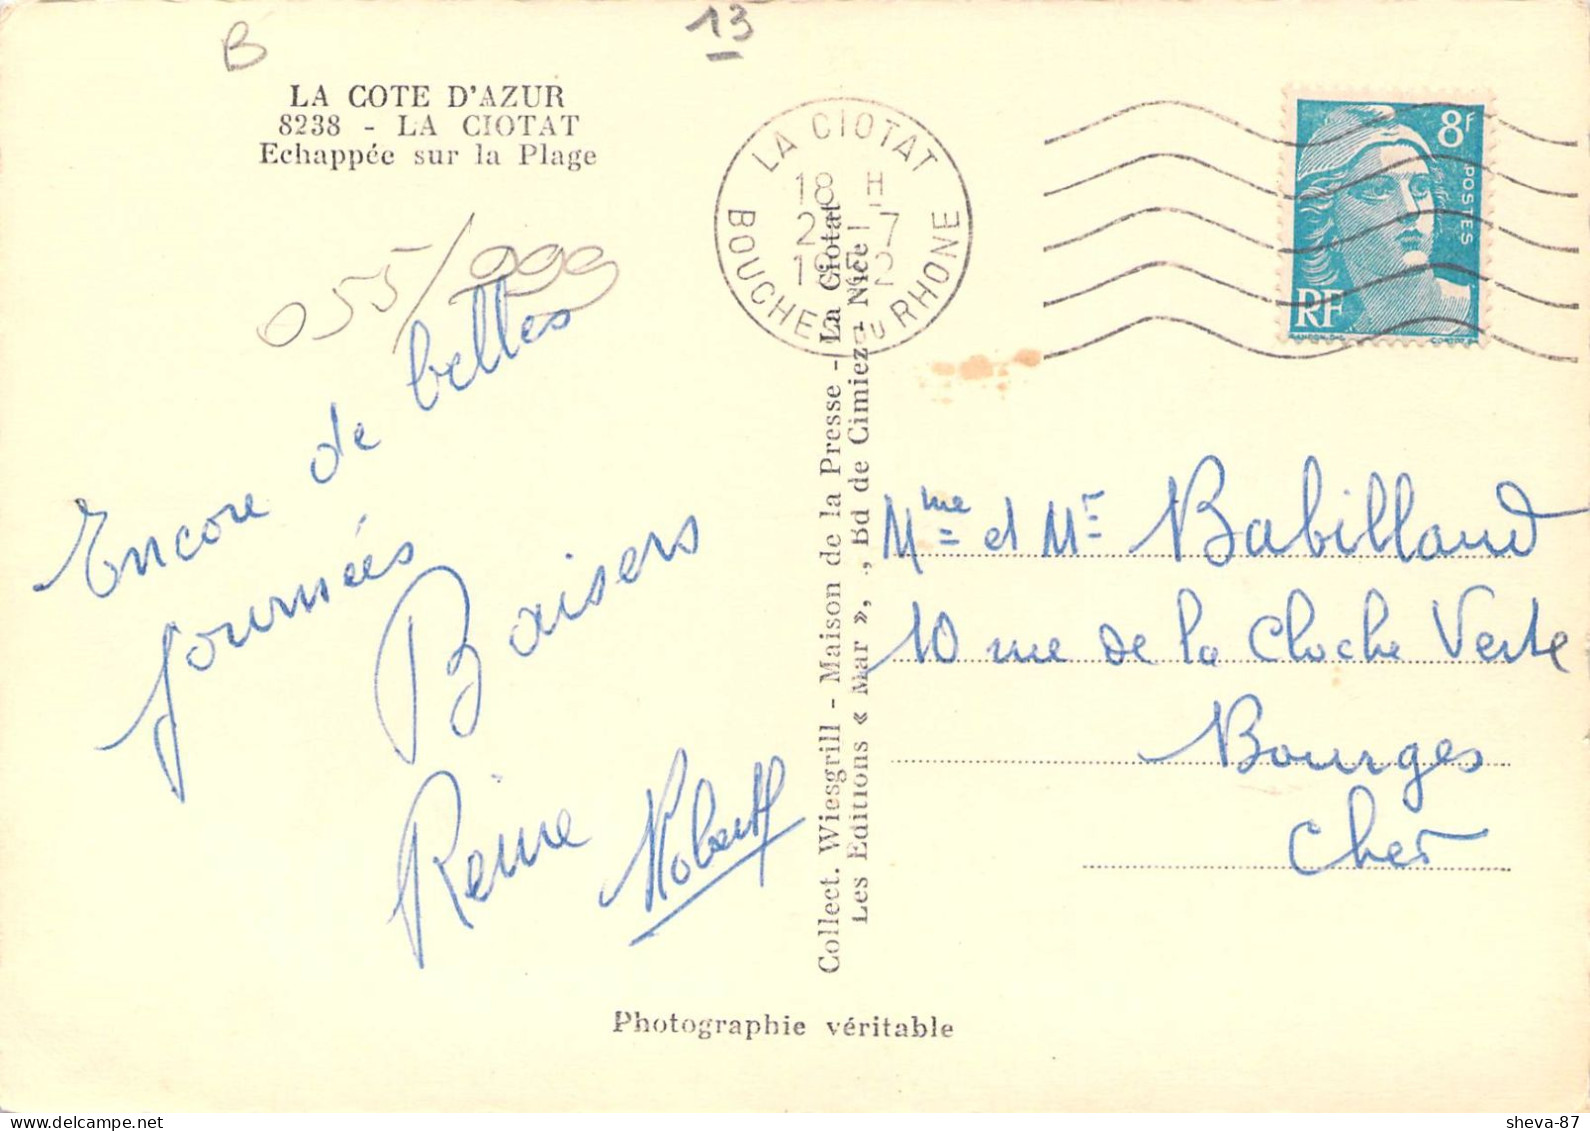 B
13
LA COTE D'AZUR
8238 - LA CIOTAT
Echappée sur la Plage
055/999
Encore de belles
journées
Baisers
Reine Robert
Collect. Wiesgrill - Maison de la Presse - La Ciotat
Les Editions « Mar », , Bd de Cimiez - Nice
LA CIOTAT
18 H
7
BOUCHES DU RHONE
8F
POSTES
RF
Mme et Mr Babillaud
10 rue de la Cloche Verte
Bourges
Cher
Photographie véritable
sheva-87